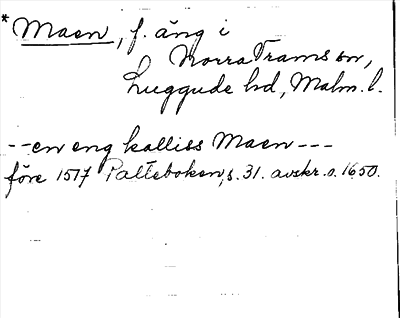 * Maen, f. äng i
Norra Frams sn,
Luggude hd, Malm. l.
--en eng kalliss Maen---
före 1517 Palteboken, s. 31. avskr. o. 1650.